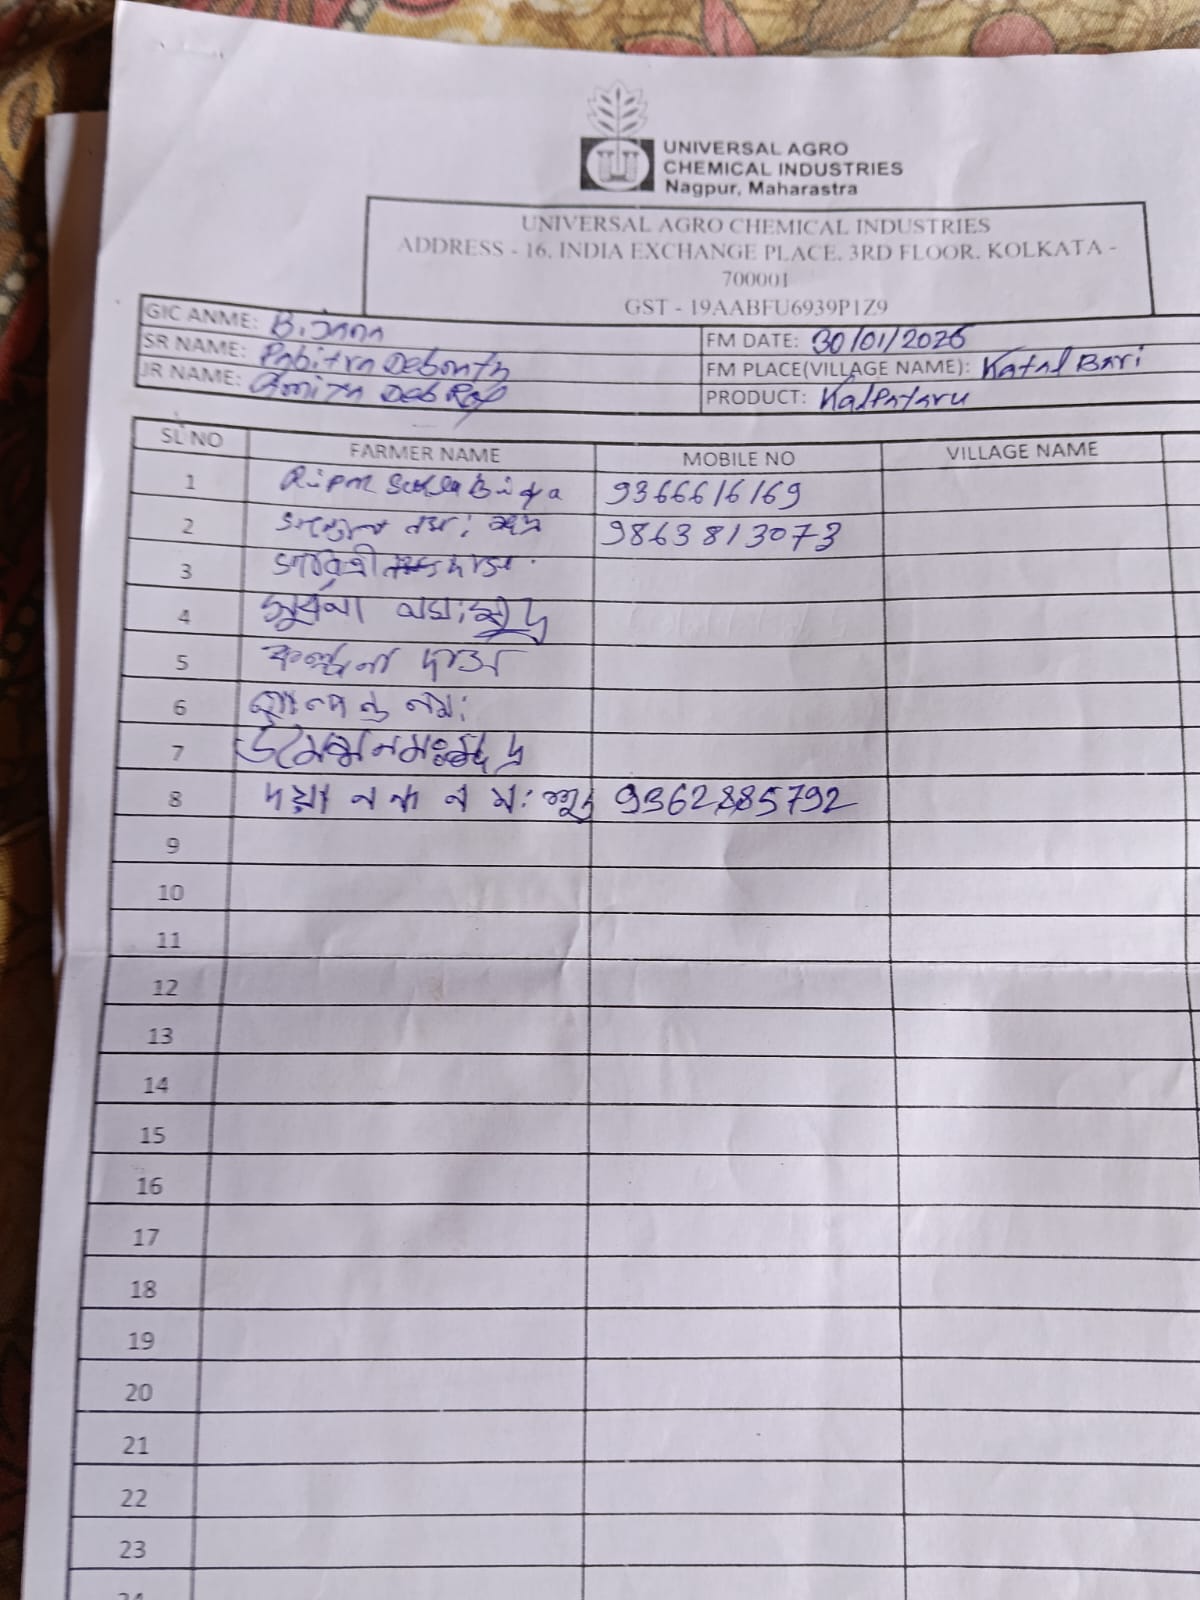 UNIVERSAL AGRO
CHEMICAL INDUSTRIES
Nagpur, Maharastra
UNIVERSAL AGRO CHEMICAL INDUSTRIES
ADDRESS - 16, INDIA EXCHANGE PLACE, 3RD FLOOR, KOLKATA -
700001
GST - 19AABFU6939P1Z9
GIC ANME: B. Jana
SR NAME: Pabitra Debnath
JR NAME: DebRoy
FM DATE: 30/01/2026
FM PLACE(VILLAGE NAME): Katal Bari
PRODUCT: Kalpataru
SL NO FARMER NAME MOBILE NO VILLAGE NAME
1 9366616169
2 নমঃ শূদ্র 9863813073
3 সাবিত্রী দাস
4 সুষমা নমঃশূদ্র
5 কল্পনা দাস
6 নমঃ
7 নমঃশূদ্র
8 দয়া নন্দ নমঃশূদ্র
9
10
11
12
13
14
15
16
17
18
19
20
21
22
23
24